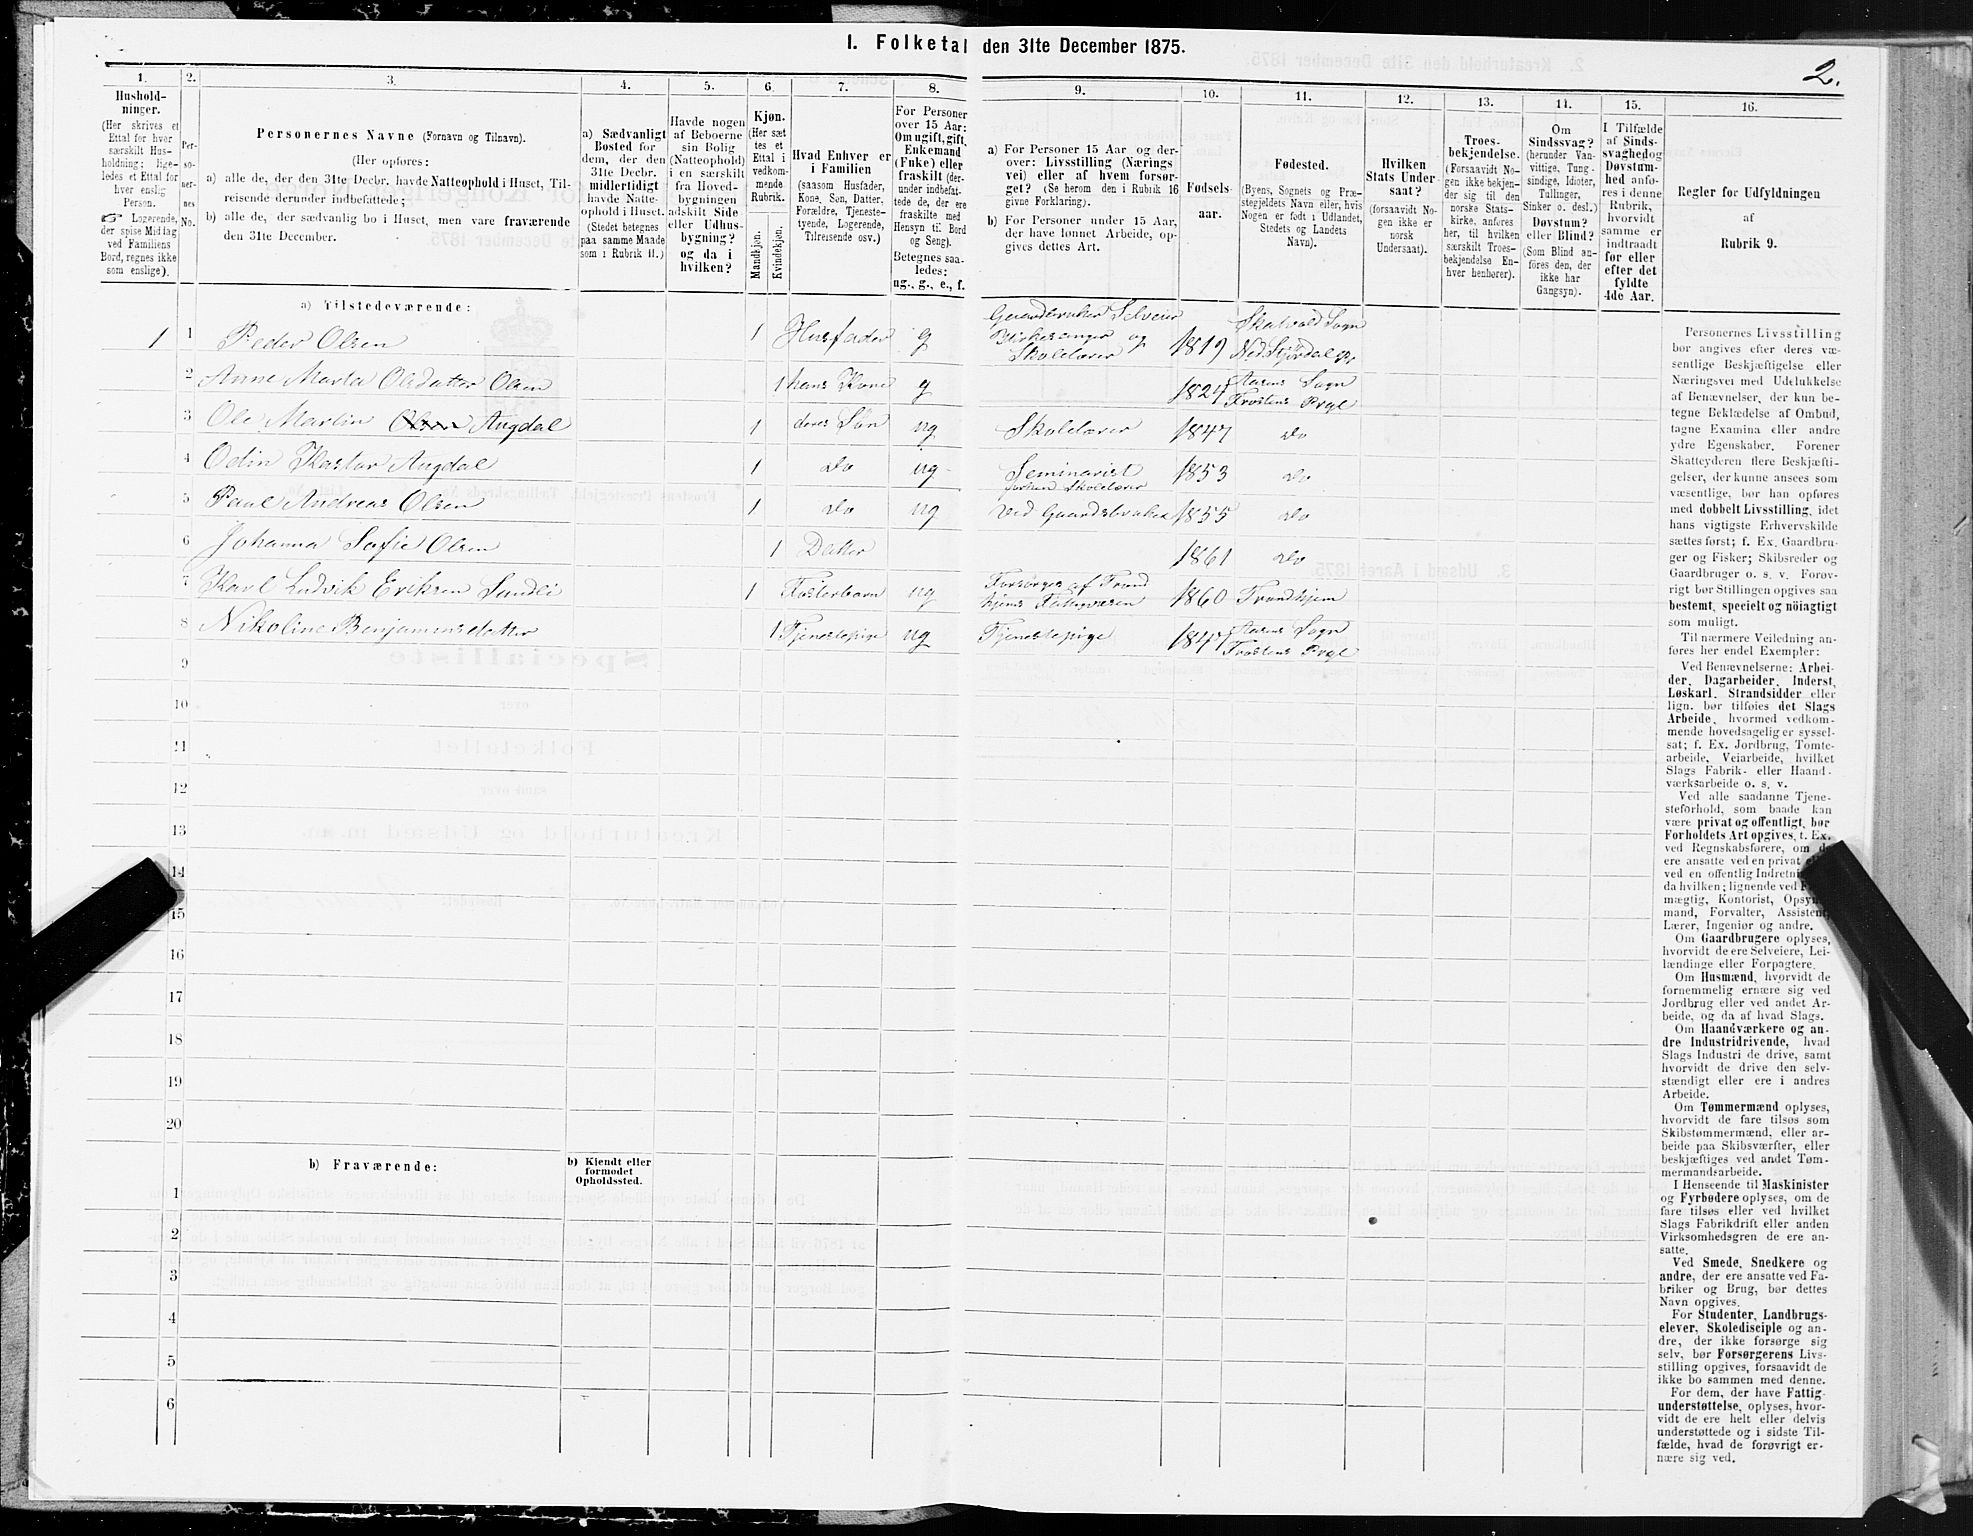 I. Folketal den 31te December 1875.
2.
1. 2. 3. 4. 5. 6. 7. 8. 9. 10. 11. 12. 13. 14. 15. 16.
Hushold-
ninger.
(Her skrives et
Ettal for hver
særskilt Hus-
holdning; lige-
ledes et Ettal for
hver enslig
Person.
☞ Logerende,
der spise Middag
ved Familiens
Bord, regnes ikke
som enslige).
Per-
so-
ner-
nes
No.
Personernes Navne (Fornavn og Tilnavn).
(Her opføres:
a) alle de, der den 31te Decbr. havde Natteophold i Huset, Til-
reisende derunder indbefattede;
b) alle de, der sædvanlig bo i Huset, men vare fraværende
den 31te December.
a) Sædvanligt
Bosted for
dem, der den
31te Decbr.
midlertidigt
havde Natte-
ophold i Huset.
(Stedet betegnes
paa samme Maade
som i Rubrik 11.)
Havde nogen
af Beboerne
sin Bolig
(Natteophold)
i en særskilt
fra Hoved-
bygningen
adskilt Side
eller Udhus-
bygning?
og da i
hvilken?
Kjøn.
(Her sæt
tes et
Ettal i
vedkom-
mende
Rubrik.
Mandkjøn.
Kvindekjøn.
Hvad Enhver er
i Familien
(saasom Husfader,
Kone, Søn, Datter,
Forældre, Tjeneste-
tyende, Logerende,
Tilreisende osv.)
For Personer
over 15 Aar:
Om ugift, gift,
Enkemand
(Enke) eller
fraskilt (der-
under indbefat-
tede de, der ere
fraskilte med
Hensyn til Bord
og Seng).
Betegnes saa-
ledes:
ug., g., e., f.
a) For Personer 15 Aar og der-
over: Livsstilling (Nærings
vei) eller af hvem forsør-
get? (Se herom den i Rubrik 16
givne Forklaring).
b) For Personer under 15 Aar,
der have lønnet Arbeide, op-
gives dettes Art.
Fødsels-
aar.
Fødested.
(Byens, Sognets og Præ-
stegjeldets Navn eller, hvis
Nogen er født i Udlandet,
Stedets og Landets
Navn).
Hvilken
Stats Under
saat?
(forsaavidt No-
gen ikke er
norsk
Undersaat).
Troes-
bekjendelse.
(Forsaavidt No-
gen ikke bekjen-
der sig til den
norske Stats-
kirke, anføres
her, til hvilken
særskilt Troes-
bekjendelse En-
hver henhører).
Om
Sindssvag?
(herunder Van-
vittige, Tung-
sindige, Idioter,
Tullinger,
Sinker o. desl.)
Døvstum?
eller Blind?
(Som Blind an-
føres den, der
ikke har
Gangsyn).
I Tilfælde
af Sinds-
svaghed og
Døvstum-
hed anfø-
res i denne
Rubrik,
hvorvidt
samme er
indtraadt
før eller
efter det
fyldte
4de Aar.
Regler for Udfyldningen
af
Rubrik 9.
a) Tilstedeværende:
1 1 Peder Olsen 1 Husfader g Gaardbruker Selveier
Kirkesanger og
Skolelærer 1819 Skatvold Sogn
Ned. Stjørdal Pr
2 Anne Marta Olsdatter Olsen 1 hans Kone g 1824 Aasens Sogn
Frostens Prgl
3 Ole Martin Olsen Augdal 1 deres Søn ug Skolelærer 1847 Do
4 Odin Kastor Augdal 1 Do ug Seminarist
forhen Skolelærer 1853 Do
5 Paul Andreas Olsen 1 Do ug Ved Gaardsbruket 1855 Do
6 Johanna Sofie Olsen 1 Datter 1861 Do
7 Karl Ludvik Eriksen Sandli 1 Fosterbarn ug Forsørges af Trond
hjems Fatigvæsen 1860 Trondhjem
8 Nikoline Benjaminsdatter 1 Tjenestepige ug Tjenestepige 1847 Aasens Sogn
Frostens Prgl
9
10
11
12
13
14
15
16
17
18
19
20
b) Fraværende:
b) Kjendt eller
formodet
Opholdssted.
1
2
3
4
5
6
Personernes Livsstilling
bør angives efter deres væ-
sentlige Beskjæftigelse eller
Næringsvei med Udelukkelse
af Benævnelser, der kun be-
tegne Beklædelse af Ombud,
tagne Examina eller andre
ydre Egenskaber. Forener
Skatteyderen flere Beskjæfti-
gelser, der kunne ansees som
væsentlige, bør han opføres
med dobbelt Livsstilling, idet
hans vigtigste Erhvervskilde
sættes først; f. Ex. Gaardbru-
ger og Fisker; Skibsreder og
Gaardbruger o. s. v. Forøv-
rigt bør Stillingen opgives saa
bestemt, specielt og nöiagtigt
som muligt.
Til nærmere Veiledning an-
føres her endel Exempler:
Ved Benævnelserne: Arbei-
der, Dagarbeider, Inderst,
Løskarl, Strandsidder eller
lign. bør tilføies det Slags
Arbeide, hvormed vedkom-
mende hovedsagelig er syssel-
sat; f. Ex. Jordbrug, Tomte-
arbeide, Veiarbeide, hvilket
Slags Fabrik- eller Haand-
værksarbeide o. s. v.
Ved alle saadanne Tjene-
steforhold, som baade kan
være privat og offentligt, bør
Forholdets Art opgives, t. Ex.
ved Regnskabsførere, om de
ere ansatte ved en privat eller
ved en offentlig Indretning og
da hvilken; lignende ved
mægtig, Kontorist, Opsyns-
mand, Forvalter, Assistent,
Lærer, Ingeniør og andre.
Om Gaardbrugere oplyses,
hvorvidt de ere Selveiere, Lei-
lændinge eller Forpagtere.
Om Husmænd, hvorvidt de
fornemmelig ernære sig ved
Jordbrug eller ved andet Ar-
beide, og da af hvad Slags.
Om Haandværkere og an-
dre Industridrivende, hvad
Slags Industri de drive, samt
hvorvidt de drive den selv-
stændigt eller ere i andres
Arbeide.
Om Tømmermænd oplyses,
hvorvidt de fare tilsøs som
Skibstømmermænd, eller ar-
beide paa Skibsværfter, eller
beskjæftiges ved andet Tøm-
mermandsarbeide.
I Henseende til Maskinister
og Fyrbødere oplyses, om de
fare tilsøs eller ved hvilket
Slags Fabrikdrift eller anden
Virksomhedsgren de ere an-
satte.
Ved Smede, Snedkere og
andre, der ere ansatte ved Fa-
briker og Brug, bør dettes
Navn opgives.
For Studenter, Landbrugs-
elever, Skoledisciple og an-
dre, der ikke forsørge sig
selv, bør Forsørgerens Livs-
stilling opgives, forsaavidt de
ikke bo sammen med denne.
For dem, der have Fattig-
understøttelse, oplyses, hvor-
vidt de ere helt eller delvis
understøttede og i sidste Til-
fælde, hvad de forøvrigt er-
nære sig ved.